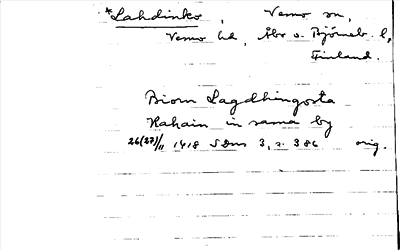 *Lahdinko, Vemo sn,
Vemo hd, Åbo o. Björneb. l,
Finland.
Biorn Lagdhingosta
Hahain in sama by
26(27)/11 1418 SDns 3, s. 386 orig.